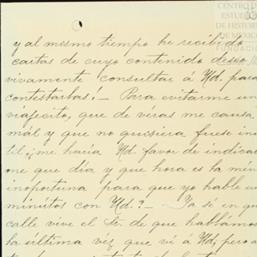 CENTRO DE
ESTUDIOS
DE HISTORIA
DE MÉXICO
y al mismo tiempo he recibido
cartas de cuyo contenido deseo
vivamente consultar á Ud. para
contestarlas!– Para evitarme un
viajecito, que de veras me causa
mál y que no quisiera fuese inú
til, ¿me haría Ud. favor de indicar
me que día y que hora es la mén
inoportuna para que yo hable un
minutos con Ud.?– Ya sé en qu
calle vive el Sr. de que hablámos
la última véz que ví á Ud, pero